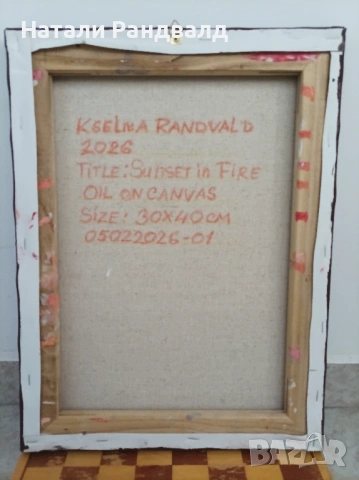 Натали Рандвалд
KSELMA RANDVALD
2026
TITLE: SUNSET IN FIRE
OIL ON CANVAS
SIZE: 30X40CM
05022026-01
BAZAR